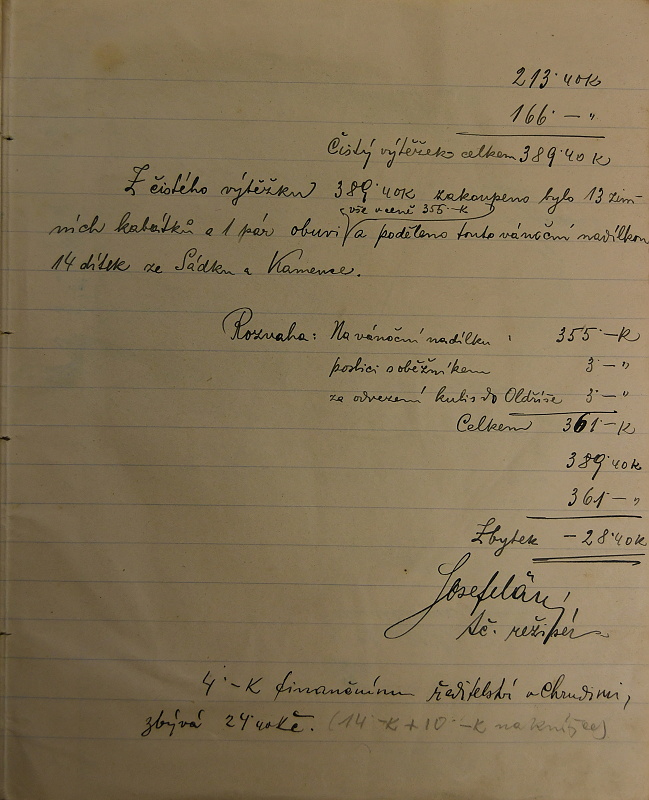 213·40K
166·— „
Čistý výtěžek celkem 389·40 K
Z čistého výtěžku 389·40K zakoupeno bylo 13 zim-
vše v ceně 355·—K
ních kabátků a 1 pár obuvi a poděleno touto vánoční nadílkou
14 dítek ze Sádku a Kamence.
Rozvaha: Na vánoční nadílku 355·—K
poslici s oběžníkem 3·— „
za odvezení kulis do Oldřiše 3·— „
Celkem 361·—K
389·40K
361·— „
Zbytek — 28·40K
Josef
t.č. režisér
4·—K finančnímu ředitelství v Chrudimi,
zbývá 24·40Kč. (14·—K + 10·—K na knížce)